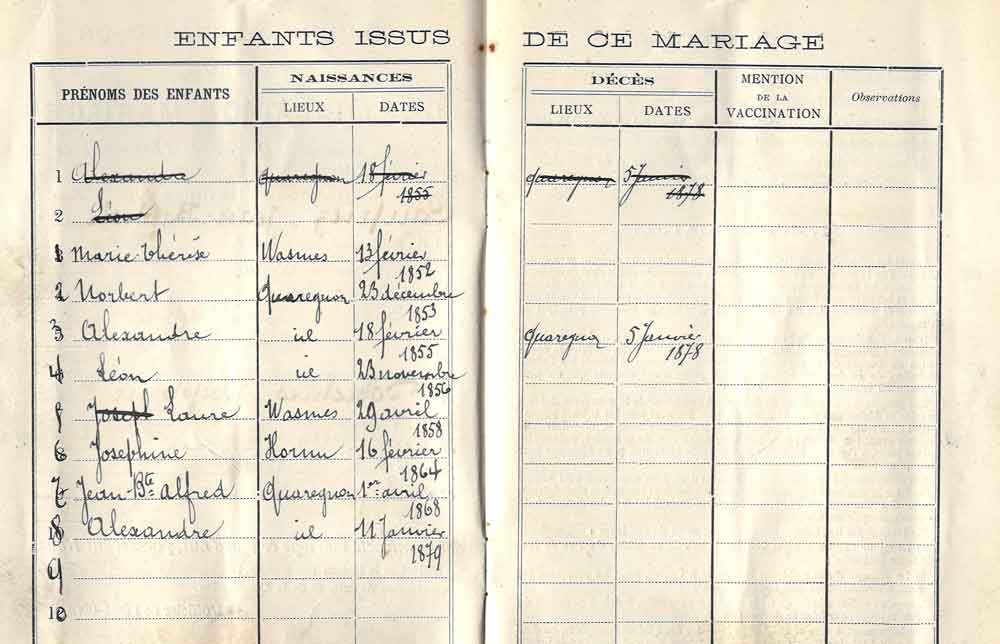 ENFANTS ISSUS DE CE MARIAGE
PRÉNOMS DES ENFANTS NAISSANCES DÉCÈS MENTION DE LA VACCINATION Observations
LIEUX DATES LIEUX DATES
1 Alexandre quaregnon 18 février 1855 quaregnon 5 Janvier 1878
2 Léon
1 Marie-thérèse Wasmes 13 février 1852
2 Norbert Quaregnon 23 décembre 1853
3 Alexandre id 18 février 1855 quaregnon 5 Janvier 1878
4 Léon id 23 novembre 1856
5 Joseph Laure Wasmes 29 avril 1858
6 Josephine Hornu 16 février 1864
7 Jean-Bte alfred Quaregnon 1er avril 1868
8 Alexandre id 11 Janvier 1879
9
10